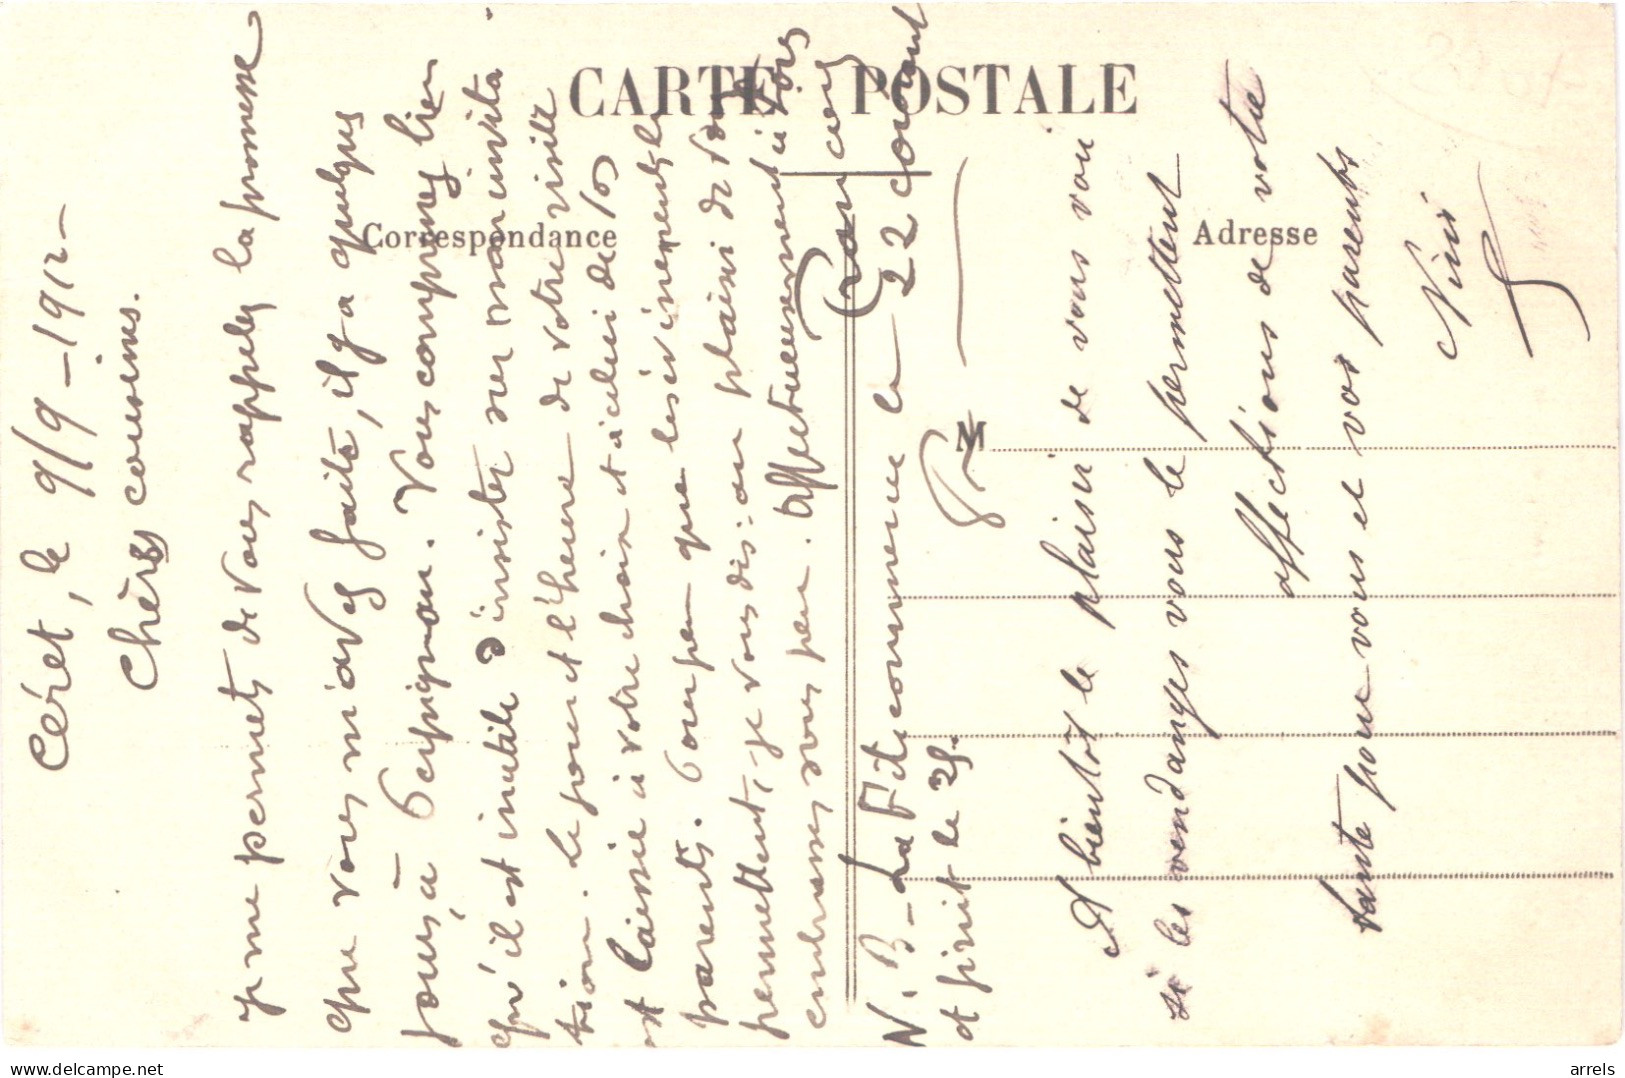 CARTE POSTALE
Correspondance
Adresse
M
Céret, le 9/9-1912-
Chères cousines.
Je me permets de vous rappeler la promesse
que vous m'avez faite, il y a quelques
jours, à Perpignan. Vous comprenez bien
qu'il est inutile d'insister sur mon invita
tion. Le jour et l'heure de votre visite
est laissée à votre choix et à celui de vos
parents. Pour peu que les événements le
permettent, je vous dis: au plaisir de
embrasser sous peu. Affectueusement à vous
N.B- La Fête commence le 22 courant
et finit le 25.
A bientôt le plaisir de vous voir
si les vendanges vous le permettent
affections de votre
tante pour vous et vos parents
arrels